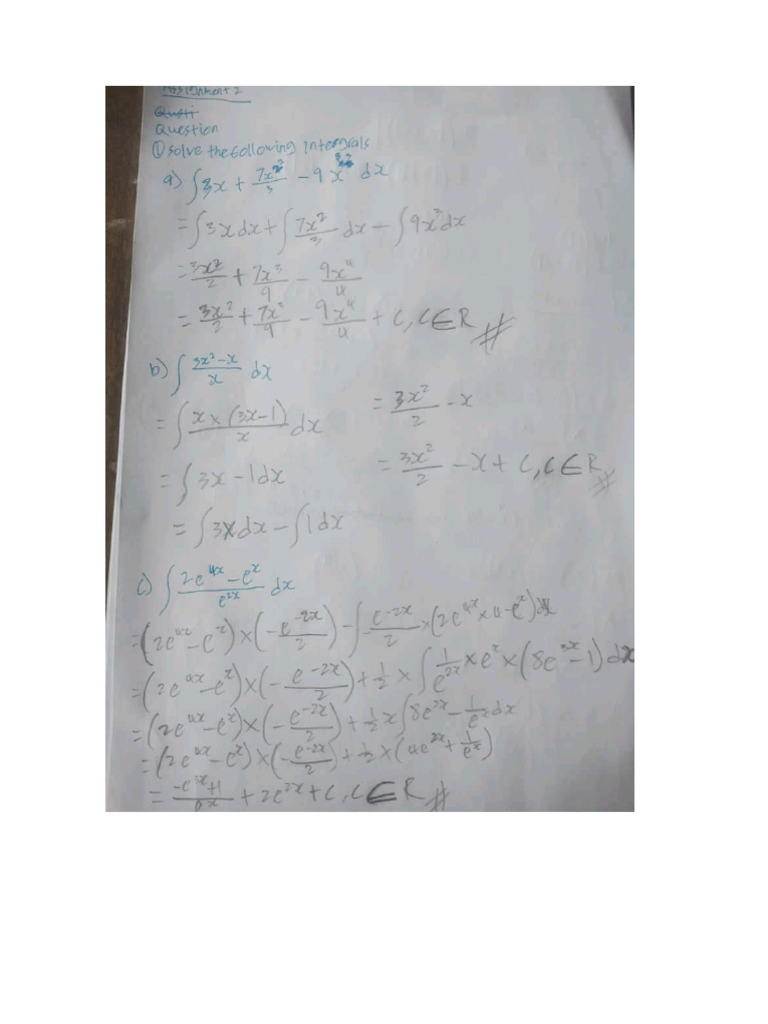 Assignment 2
Questi
Question
① Solve the following integrals
a) ∫3x + 7x²/3 - 9x³ dx
= ∫3x dx + ∫7x²/3 dx - ∫9x³dx
= 3x²/2 + 7x³/9 - 9x⁴/4
= 3x²/2 + 7x³/9 - 9x⁴/4 + C, C∈R
b) ∫ 3x²-x/x dx
= ∫ x×(3x-1)/x dx
= ∫3x - 1dx
= ∫3x dx - ∫1dx
= 3x²/2 - x
= 3x²/2 - x + C, C∈R
c) ∫ 2e⁴ˣ - eˣ/e²ˣ dx
= (2e⁴ˣ - eˣ)×(-e⁻²ˣ/2) - ∫ -e⁻²ˣ/2 ×(2e⁴ˣ×4 - eˣ)dx
= (2e⁴ˣ - eˣ)×(-e⁻²ˣ/2) + 1/2 × ∫ 1/e²ˣ × eˣ × (8e³ˣ - 1) dx
= (2e⁴ˣ - eˣ)×(-e⁻²ˣ/2) + 1/2 × ∫8e²ˣ - 1/eˣ dx
= (2e⁴ˣ - eˣ)×(-e⁻²ˣ/2) + 1/2 × (4e²ˣ + 1/eˣ)
= -e³ˣ+1/eˣ + 2e²ˣ + C, C∈R